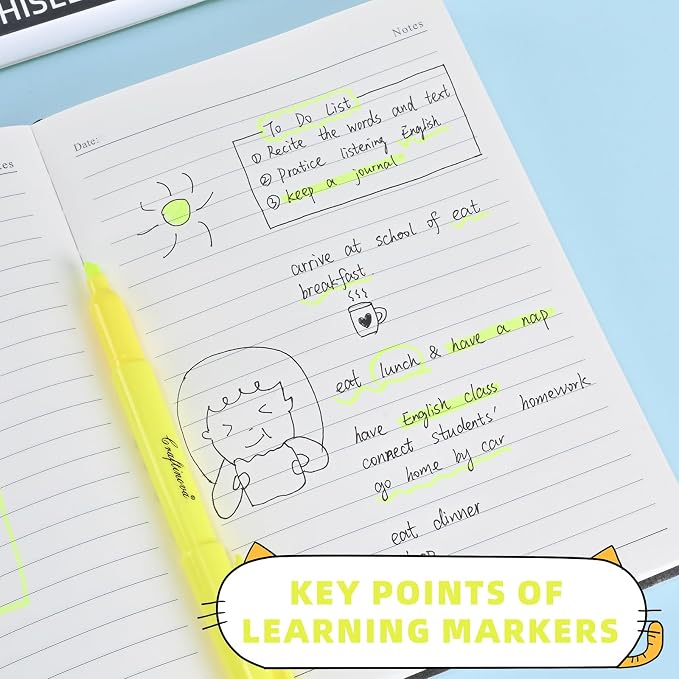 Notes
Date:
To Do List
① Recite the words and text
② Pratice listening English
③ keep a journal
arrive at school of eat
breakfast
eat lunch & have a nap
have English class
connect students' homework
go home by car
eat dinner
Craftinova
KEY POINTS OF
LEARNING MARKERS